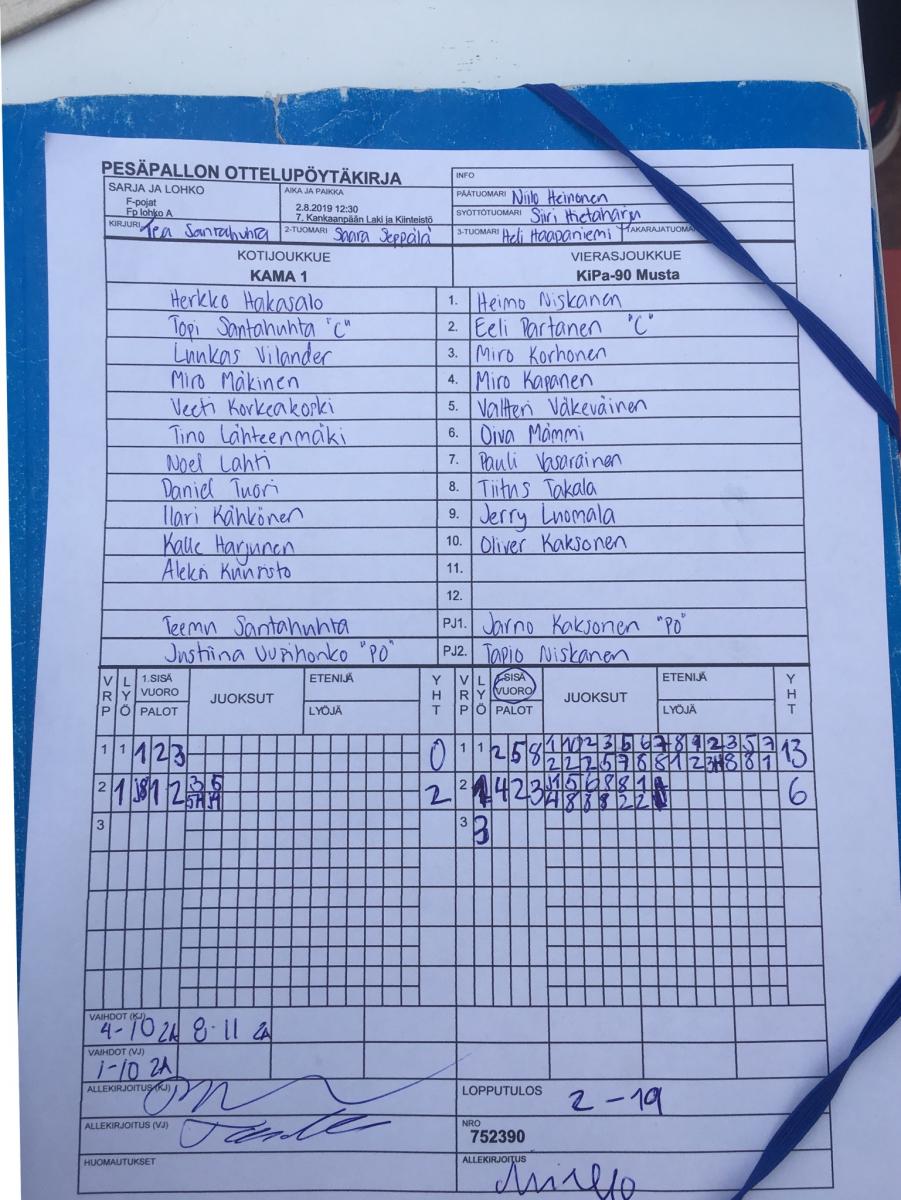 PESÄPALLON OTTELUPÖYTÄKIRJA
INFO
SARJA JA LOHKO
F-pojat
Fp lohko A
AIKA JA PAIKKA
2.8.2019 12:30
7. Kankaanpään Laki ja Kiinteistö
PÄÄTUOMARI Niilo Heinonen
SYÖTTÖTUOMARI Siiri Hietaharju
KIRJURI Tea Santahuhta
2-TUOMARI Saara Seppälä
3-TUOMARI Heli Haapaniemi
TAKARAJATUOMARI
KOTIJOUKKUE VIERASJOUKKUE
KAMA 1 KiPa-90 Musta
Herkko Hakasalo 1. Heimo Niskanen
Topi Santahuhta "C" 2. Eeli Partanen "C"
Luukas Vilander 3. Miro Korhonen
Miro Mäkinen 4. Miro Kapanen
Veeti Korkeakoski 5. Valtteri Väkeväinen
Tino Lähteenmäki 6. Oiva Mämmi
Noel Lahti 7. Pauli Vasarainen
Daniel Tuori 8. Tiitus Takala
Ilari Kähkönen 9. Jerry Luomala
Kalle Harjunen 10. Oliver Kaksonen
Aleksi Kuuristo 11.
12.
Teemu Santahuhta PJ1. Jarno Kaksonen "PO"
Justiina Uusihonko "PO" PJ2. Tapio Niskanen
VRP LYÖ 1.SISÄ VUORO PALOT JUOKSUT ETENIJÄ LYÖJÄ YHT VRP LYÖ 1.SISÄ VUORO PALOT JUOKSUT ETENIJÄ LYÖJÄ YHT
1 1 1 2 3 0 1 1 2 5 8 1 10 2 3 5 6 7 8 9 2 3 5 7 13
2 1 1 2 3 5 2 2 4 2 3 6
3 3 3
VAIHDOT (KJ)
4-10 2A 8-11 2A
VAIHDOT (VJ)
1-10 2A
ALLEKIRJOITUS (KJ)
LOPPUTULOS 2-19
ALLEKIRJOITUS (VJ)
NRO
752390
HUOMAUTUKSET
ALLEKIRJOITUS